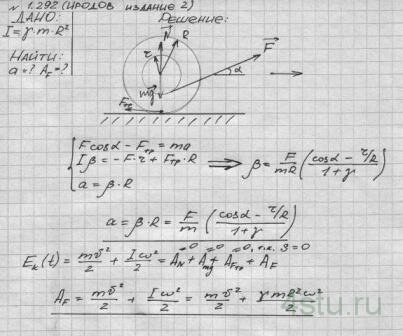 N 1.292 (ИРОДОВ издание 2)
ДАНО:
I = γ·m·R²
НАЙТИ:
a = ? A_F = ?
Решение:
N R
τ
F
α
mg
Fтр
Fcosα - Fтр = ma
Iβ = -F·τ + Fтр·R
a = β·R
⟹ β = F/mR (cosα - τ/R / 1+γ)
a = β·R = F/m (cosα - τ/R / 1+γ)
E_k(t) = mυ²/2 + Iω²/2 = A_N + A_mg + A_Fтр + A_F
=0 =0 =0, т.к. S=0
A_F = mυ²/2 + Iω²/2 = mυ²/2 + γmR²ω²/2
4stu.ru